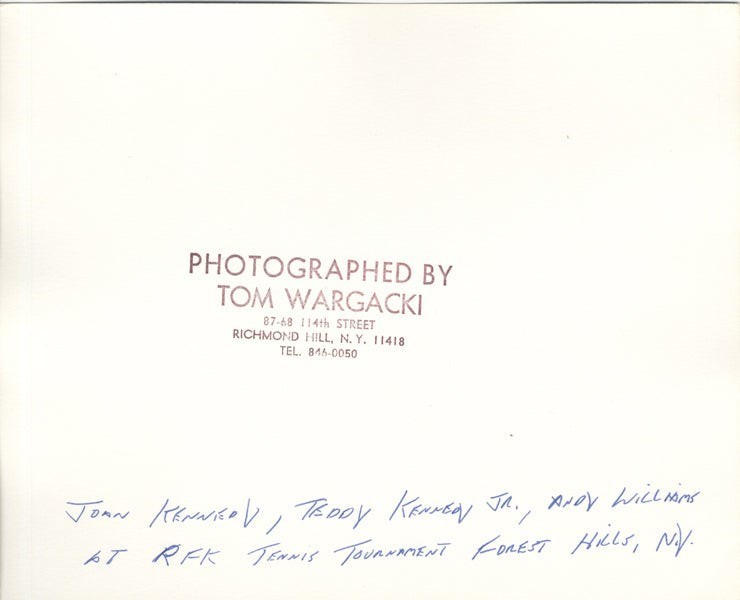 PHOTOGRAPHED BY
TOM WARGACKI
87-68 114th STREET
RICHMOND HILL, N.Y. 11418
TEL. 846-0050
JOAN KENNEDY, TEDDY KENNEDY JR., ANDY WILLIAMS
AT RFK TENNIS TOURNAMENT FOREST HILLS, N.Y.